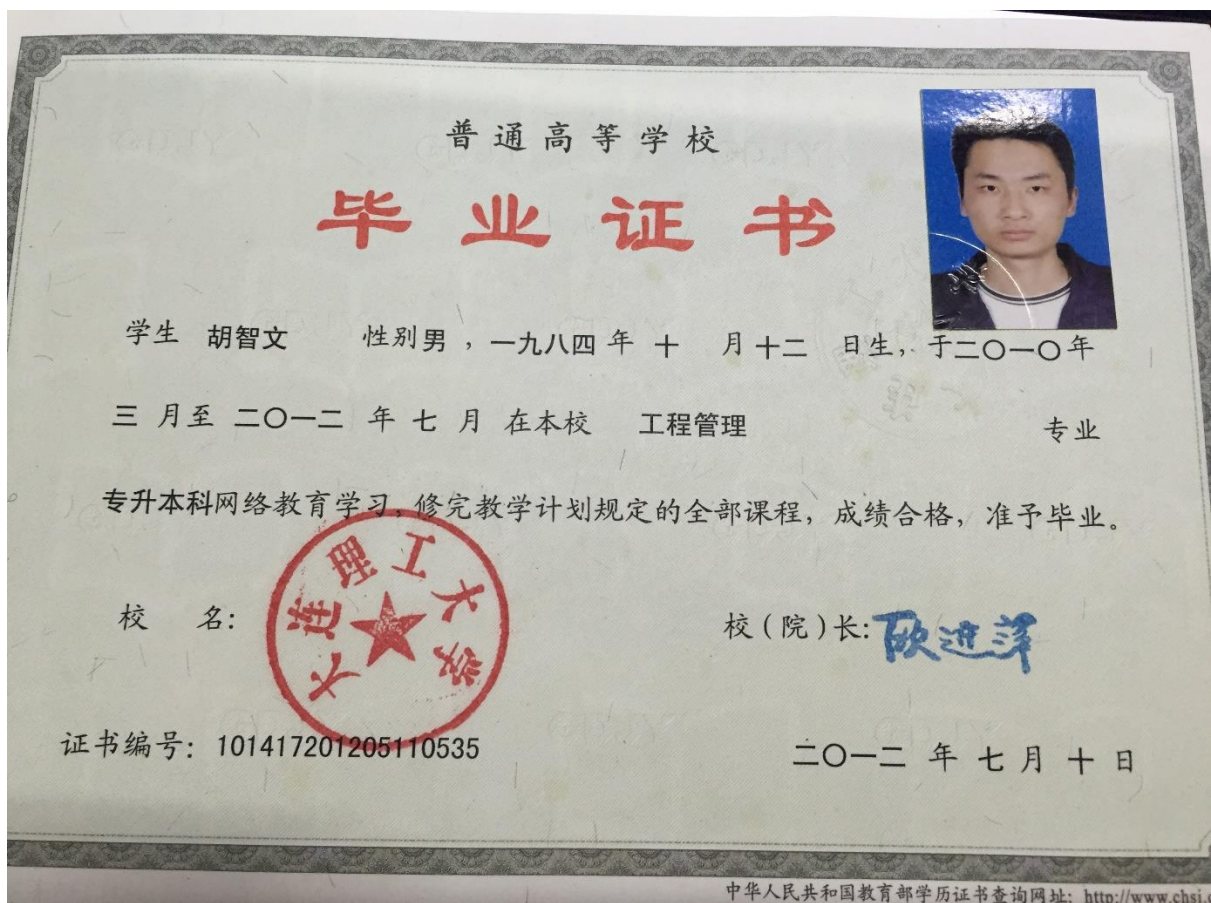 普通高等学校
毕业证书
学生 胡智文 性别男，一九八四年 十 月十二 日生，于二〇一〇年
三 月至 二〇一二 年 七 月 在本校 工程管理 专业
专升本科网络教育学习，修完教学计划规定的全部课程，成绩合格，准予毕业。
校 名：
大连理工大学
校（院）长：欧进萍
证书编号：101417201205110535
二〇一二 年 七 月 十 日
中华人民共和国教育部学历证书查询网址：http://www.chsi.c